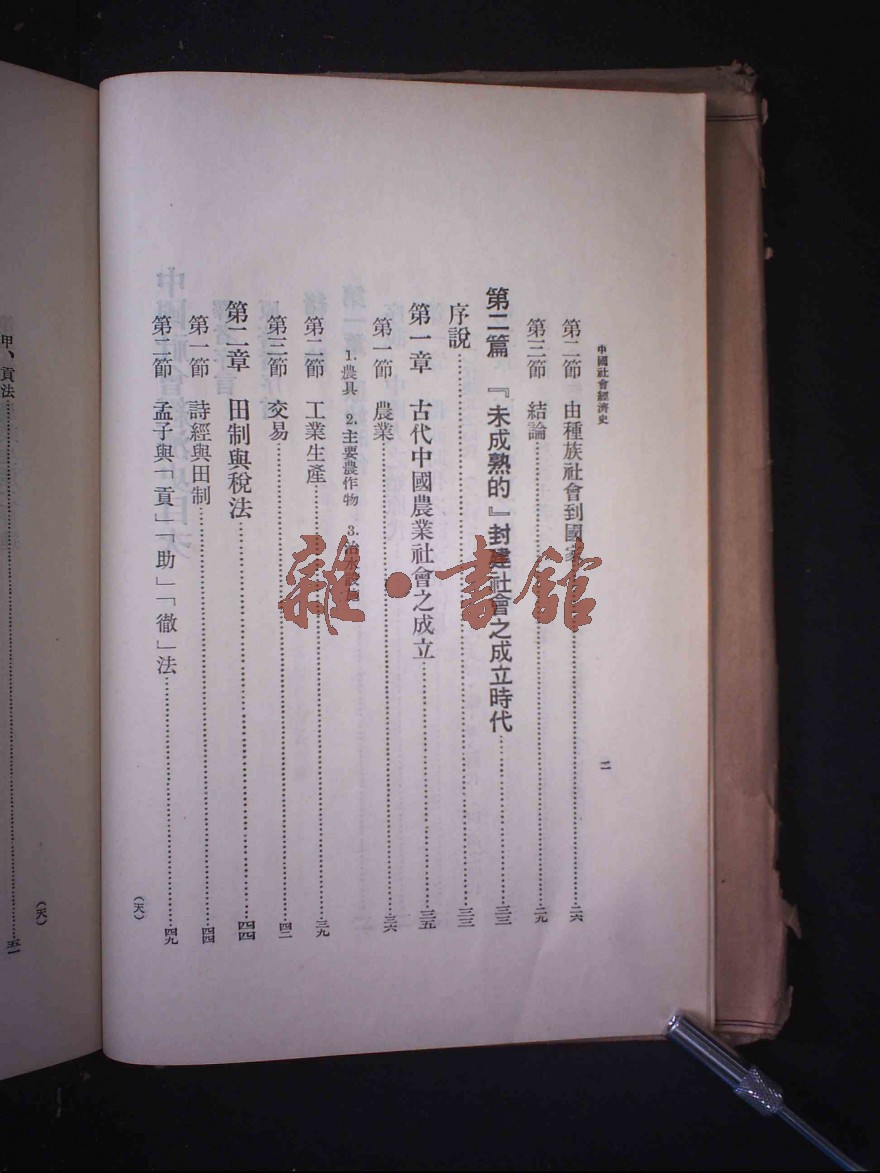 中國社會經濟史
二
第二節 由種族社會到國家……二六
第三節 結論……二九
第二篇 『未成熟的』封建社會之成立時代……三三
序說……三三
第一章 古代中國農業社會之成立……三五
第一節 農業……三六
1.農具 2.主要農作物 3.治水
第二節 工業生產……三九
第三節 交易……四二
第二章 田制與稅法……四四
第一節 詩經與田制……四四
第二節 孟子與「貢」「助」「徹」法……四九
(天)
甲、貢法……五一
(天)
雜·書館